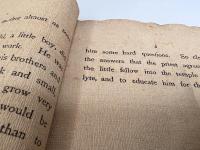 almost as
a little boy, di
work. He w
is brothers and
k and small
grow very
would be
than to
him some hard questions. So cle
the answers that the priest agree
the little fellow into the temple
lyte, and to educate him for the